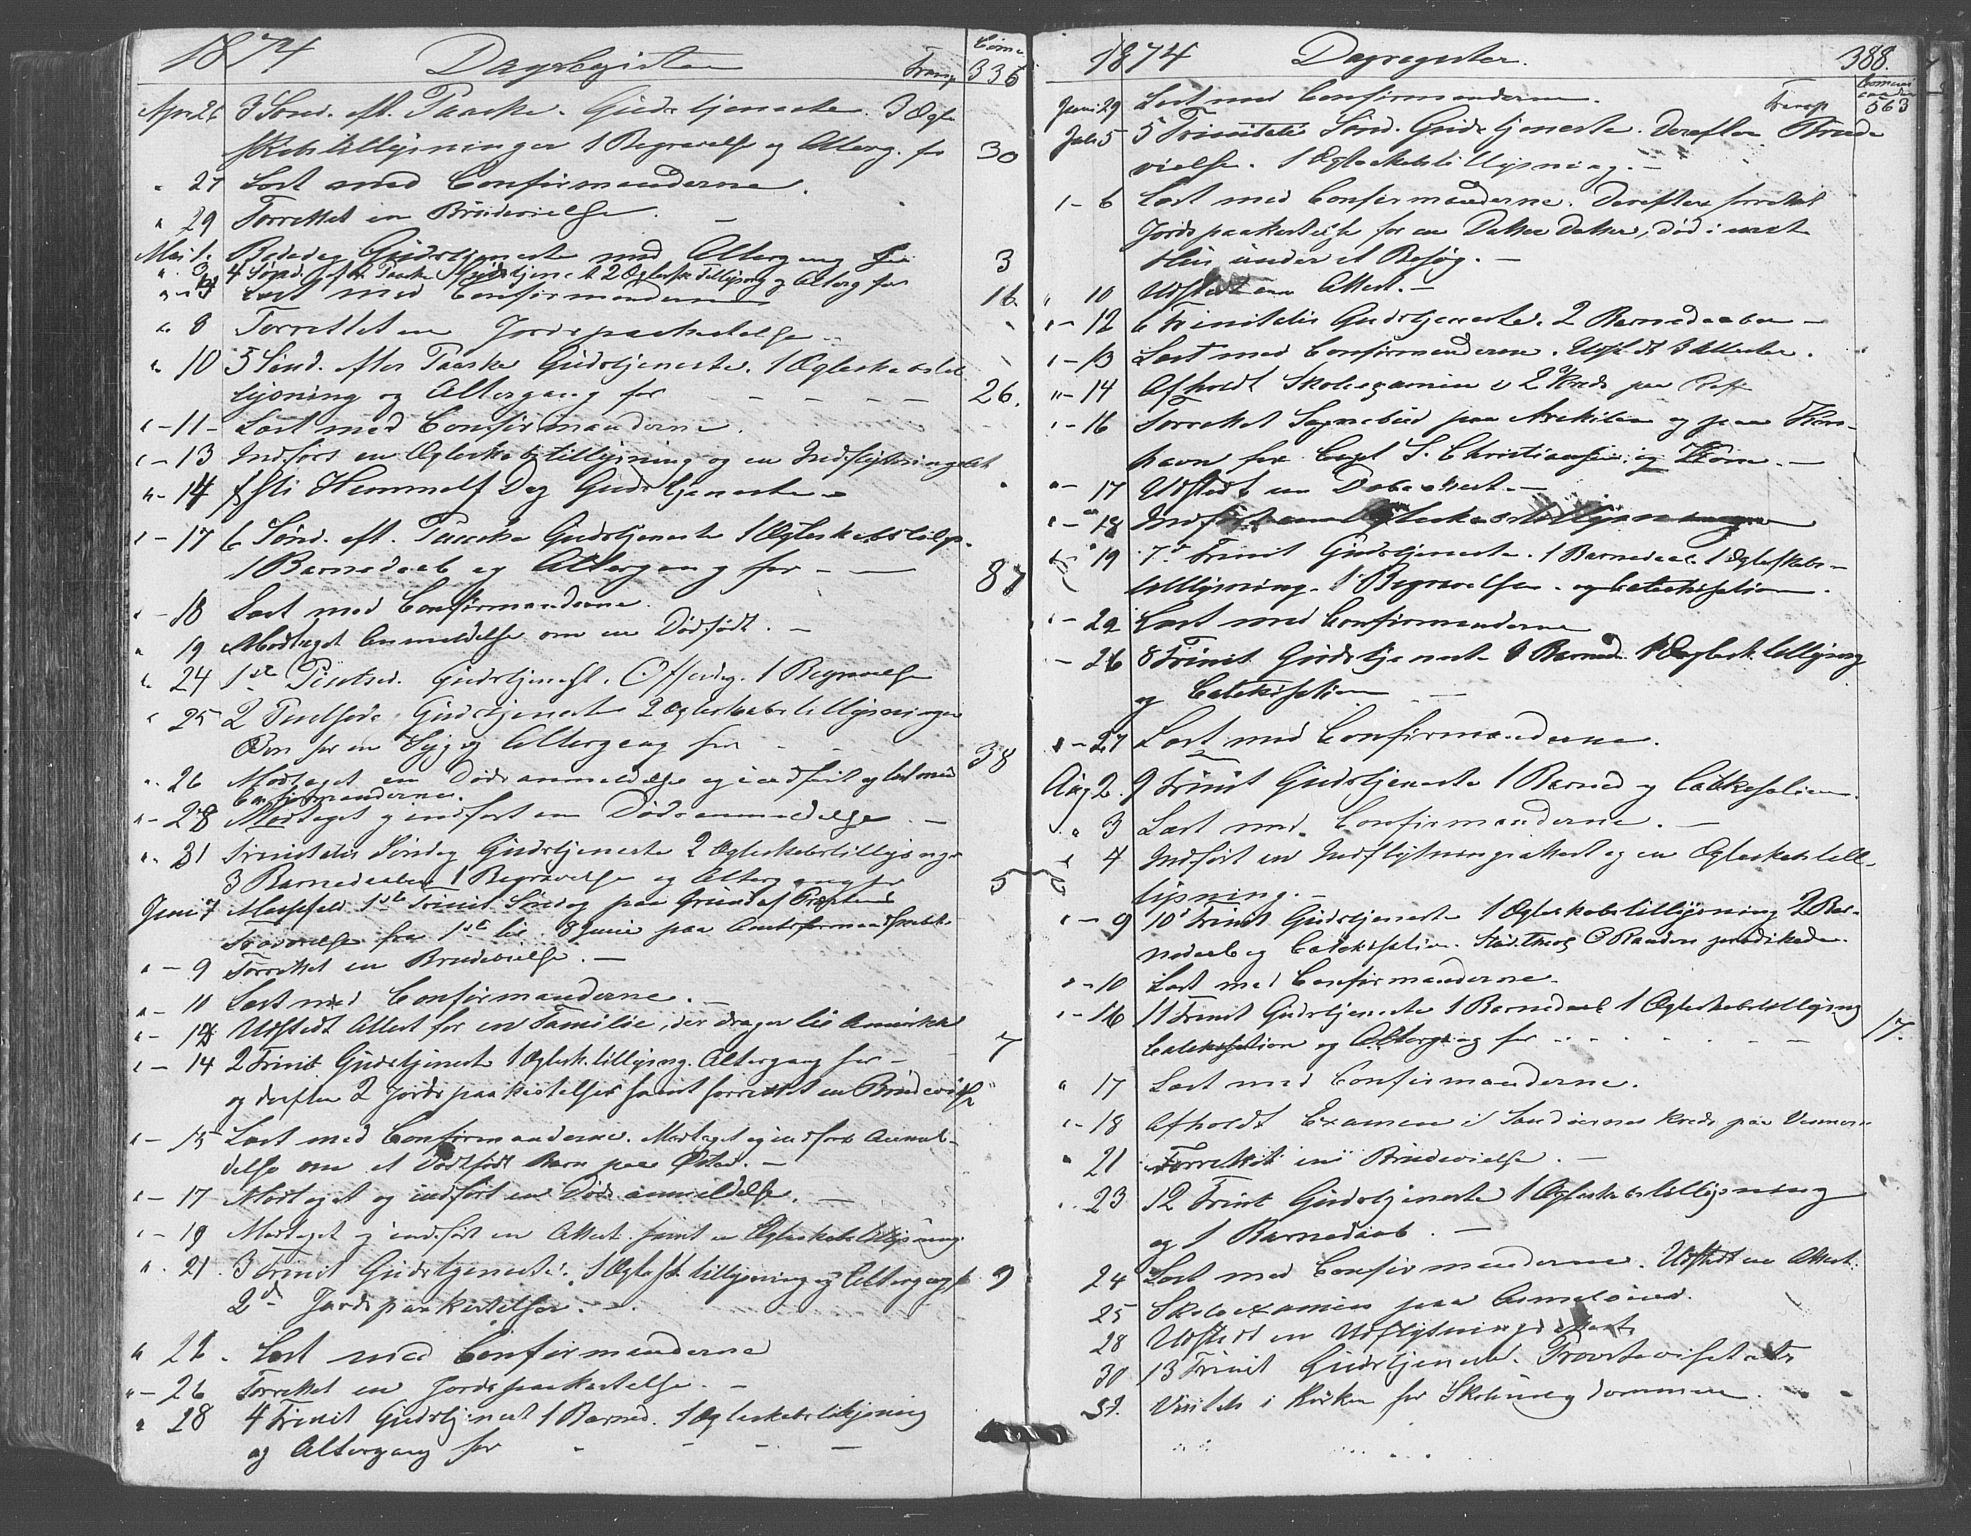 1874 Dagregister Transp. 336
Apr. 26 3 Sönd. eft. Paaske. Gudstjeneste. 3 Ægte
skabstillysninger 1 Begravelse og Alterg. for 30
" 27 Læst med Confirmanderne.
" 29 Forrettet en Brudevielse.
Mai 1. Bededag Gudstjeneste med Altergang for 3
" 3 4 Sönd. efter Paaske Gudstjeneste 2 Ægtesk. tillysning og Alterg for 16
" 4 Læst med Confirmanderne
" 8 Forrettet en Jordspaakastelse
" 10 5 Sönd. efter Paaske Gudstjeneste. 1 Ægteskabstil
lysning og Altergang for 26.
" - 11 - Læst med Confirmanderne.
" - 13 Indförs en Ægteskabstillysning og en Indflytningsatt
" - 14 Chsti Himmelf Dag Gudstjeneste
" - 17 6 Sönd. eft. Paaske Gudstjeneste 1 Ægteskabstilys.
1 Barnedaab og Altergang for - - 87
" - 18 Læst med Confirmanderne.
" 19 Modtaget Anmeldelse om en Dödfödt. -
" 24 1ste Pintsed. Gudstjenest. Offerdag. 1 Begravelse
" 25 2 Pintsedag Gudstjeneste 2 Ægteskabstillysninger
Bön for en Syg og Altergang for 38
" 26 Modtaget en Dödsanmeldelse og indfört og læst med
Confirmanderne.
" - 28 Modtaget og indfört en Dödsanmeldelse -
" 31 Trinitatis Söndag Gudstjeneste 2 Ægteskabstillysnings
3 Barnedaaber 1 Begravelse og Altergang for 5
Juni 7 Messefald 1ste Trinit Söndag paa Grund af Præstens
Fraværelse fra 1ste til 8 Juni paa Amtsformandskabet
" - 9 Forrettet en Brudevielse. -
" - 10 Læst med Confirmanderne. -
" - 12 Udstedt Attest for en Familie, der drager til Amerika
" - 14 2 Trinit Gudstjeneste 1 Ægtesk. tillysng. Altergang for - 7
og derefter 2 Jordspaakastelser samt forrettet en Brudevielse
" - 15 Læst med Confirmanderne. Modtaget og indfört Anmel-
delse om et Dödfödt Barn paa -
" - 17 Modtaget og indfört en Dödsanmeldelse. -
" - 19 Modtaget og indfört en Attest samt en Ægteskabstillysning.
" 21. 3 Trinit Gudstjeneste. 1 Ægtesk tillysning og Altergang f 9
2de Jordspaakastelser. -
" 22. Læst med Confirmanderne
" - 26 Forrettet en Jordspaakastelse. -
" 28 4 Trinit Gudstjenest 1 Barned. 1 Ægteskabstillysning
og Altergang for - - - -
1874 Dagregister. 388.
Juni 29 Læst med Confirmanderne. Transp 563
Juli 5 5 Trinitatis Sönd. Gudstjeneste. Derefter Brude
vielse. 1 Ægteskabstillysning. -
" - 6 Læst med Confirmanderne. Derefter forrettet
Jordspaakastelse for en Datter Datter, död i mit
Hus under et Besög. -
" 10 Udstedt en Attest. -
" - 12 6 Trinitatis Gudstjeneste. 2 Barnedaaber -
" - 13 Læst med Confirmanderne. Udst. 3 Attester.
" - 14 Afholdt Skoleexamen i 2 Kreds paa
" - 16 Forrettet Sognebud paa og paa
havn for S. Christiansen og Kone. -
" - 17 Udstedt en Dabsattest. -
" - 18 Indfört en Ægteskabstillysning
" 19 7de Trinit Gudstjeneste. 1 Barnedaab 1 Ægteskabs-
tillysning. 1 Begravelse. og Catechisation.
" - 22 Læst med Confirmanderne
- 26 8 Trinit Gudstjeneste Barned. 1 Ægtesk. tillysning
og Catekisation -
" - 27 Læst med Confirmanderne.
Aug 2. 9 Trinit Gudstjeneste 1 Barned og Catekesation.
" 3 Læst med Confirmanderne. -
" 4 Indfört en Indflytningsattest og en Ægteskabstill-
lysning. -
" - 9 10de Trinit Gudstjeneste 1 Ægteskabstillysning 2 Bar-
nedaab og Catekisation. Stud. Theol prædikede.
" - 10 Læst med Confirmanderne.
" - 16 11 Trinit Gudstjeneste 1 Barnedaab 1 Ægteskabstillysning
Catekisation og Altergang for - - - 17.
" 17 Læst med Confirmanderne.
" - 18 Afholdt Examen i Sandöernes Kreds paa
" 21 Forrettet en Brudevielse. -
" 23 12 Trinit Gudstjeneste 1 Ægteskabstillysning
og 1 Barnedaab. -
24 Læst med Confirmanderne. Udstedt en Attest.
25 Skoleexamen paa
28 Udstedt en Udflytningsattest
30 13 Trinit Gudstjeneste. Provstevisitats
31. Visitats i Kirken for Skoleungdommen.